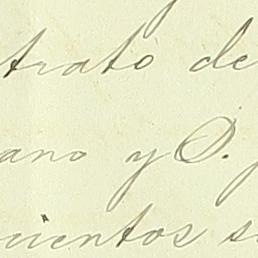 trato de
ano y D.
cientos